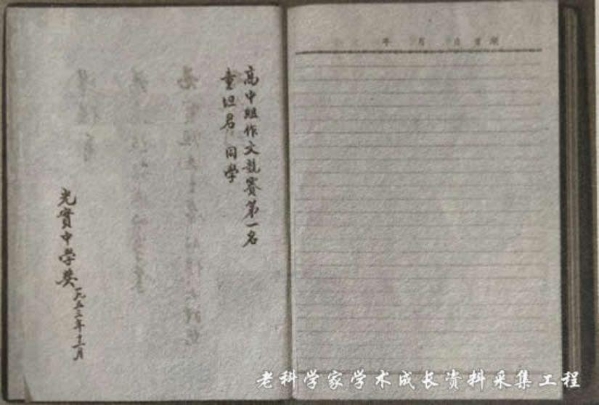 高中組作文競賽第一名
童坦君同學
光實中學奖
一九五三年十二月
年 月 日 星期
老科学家学术成长资料采集工程